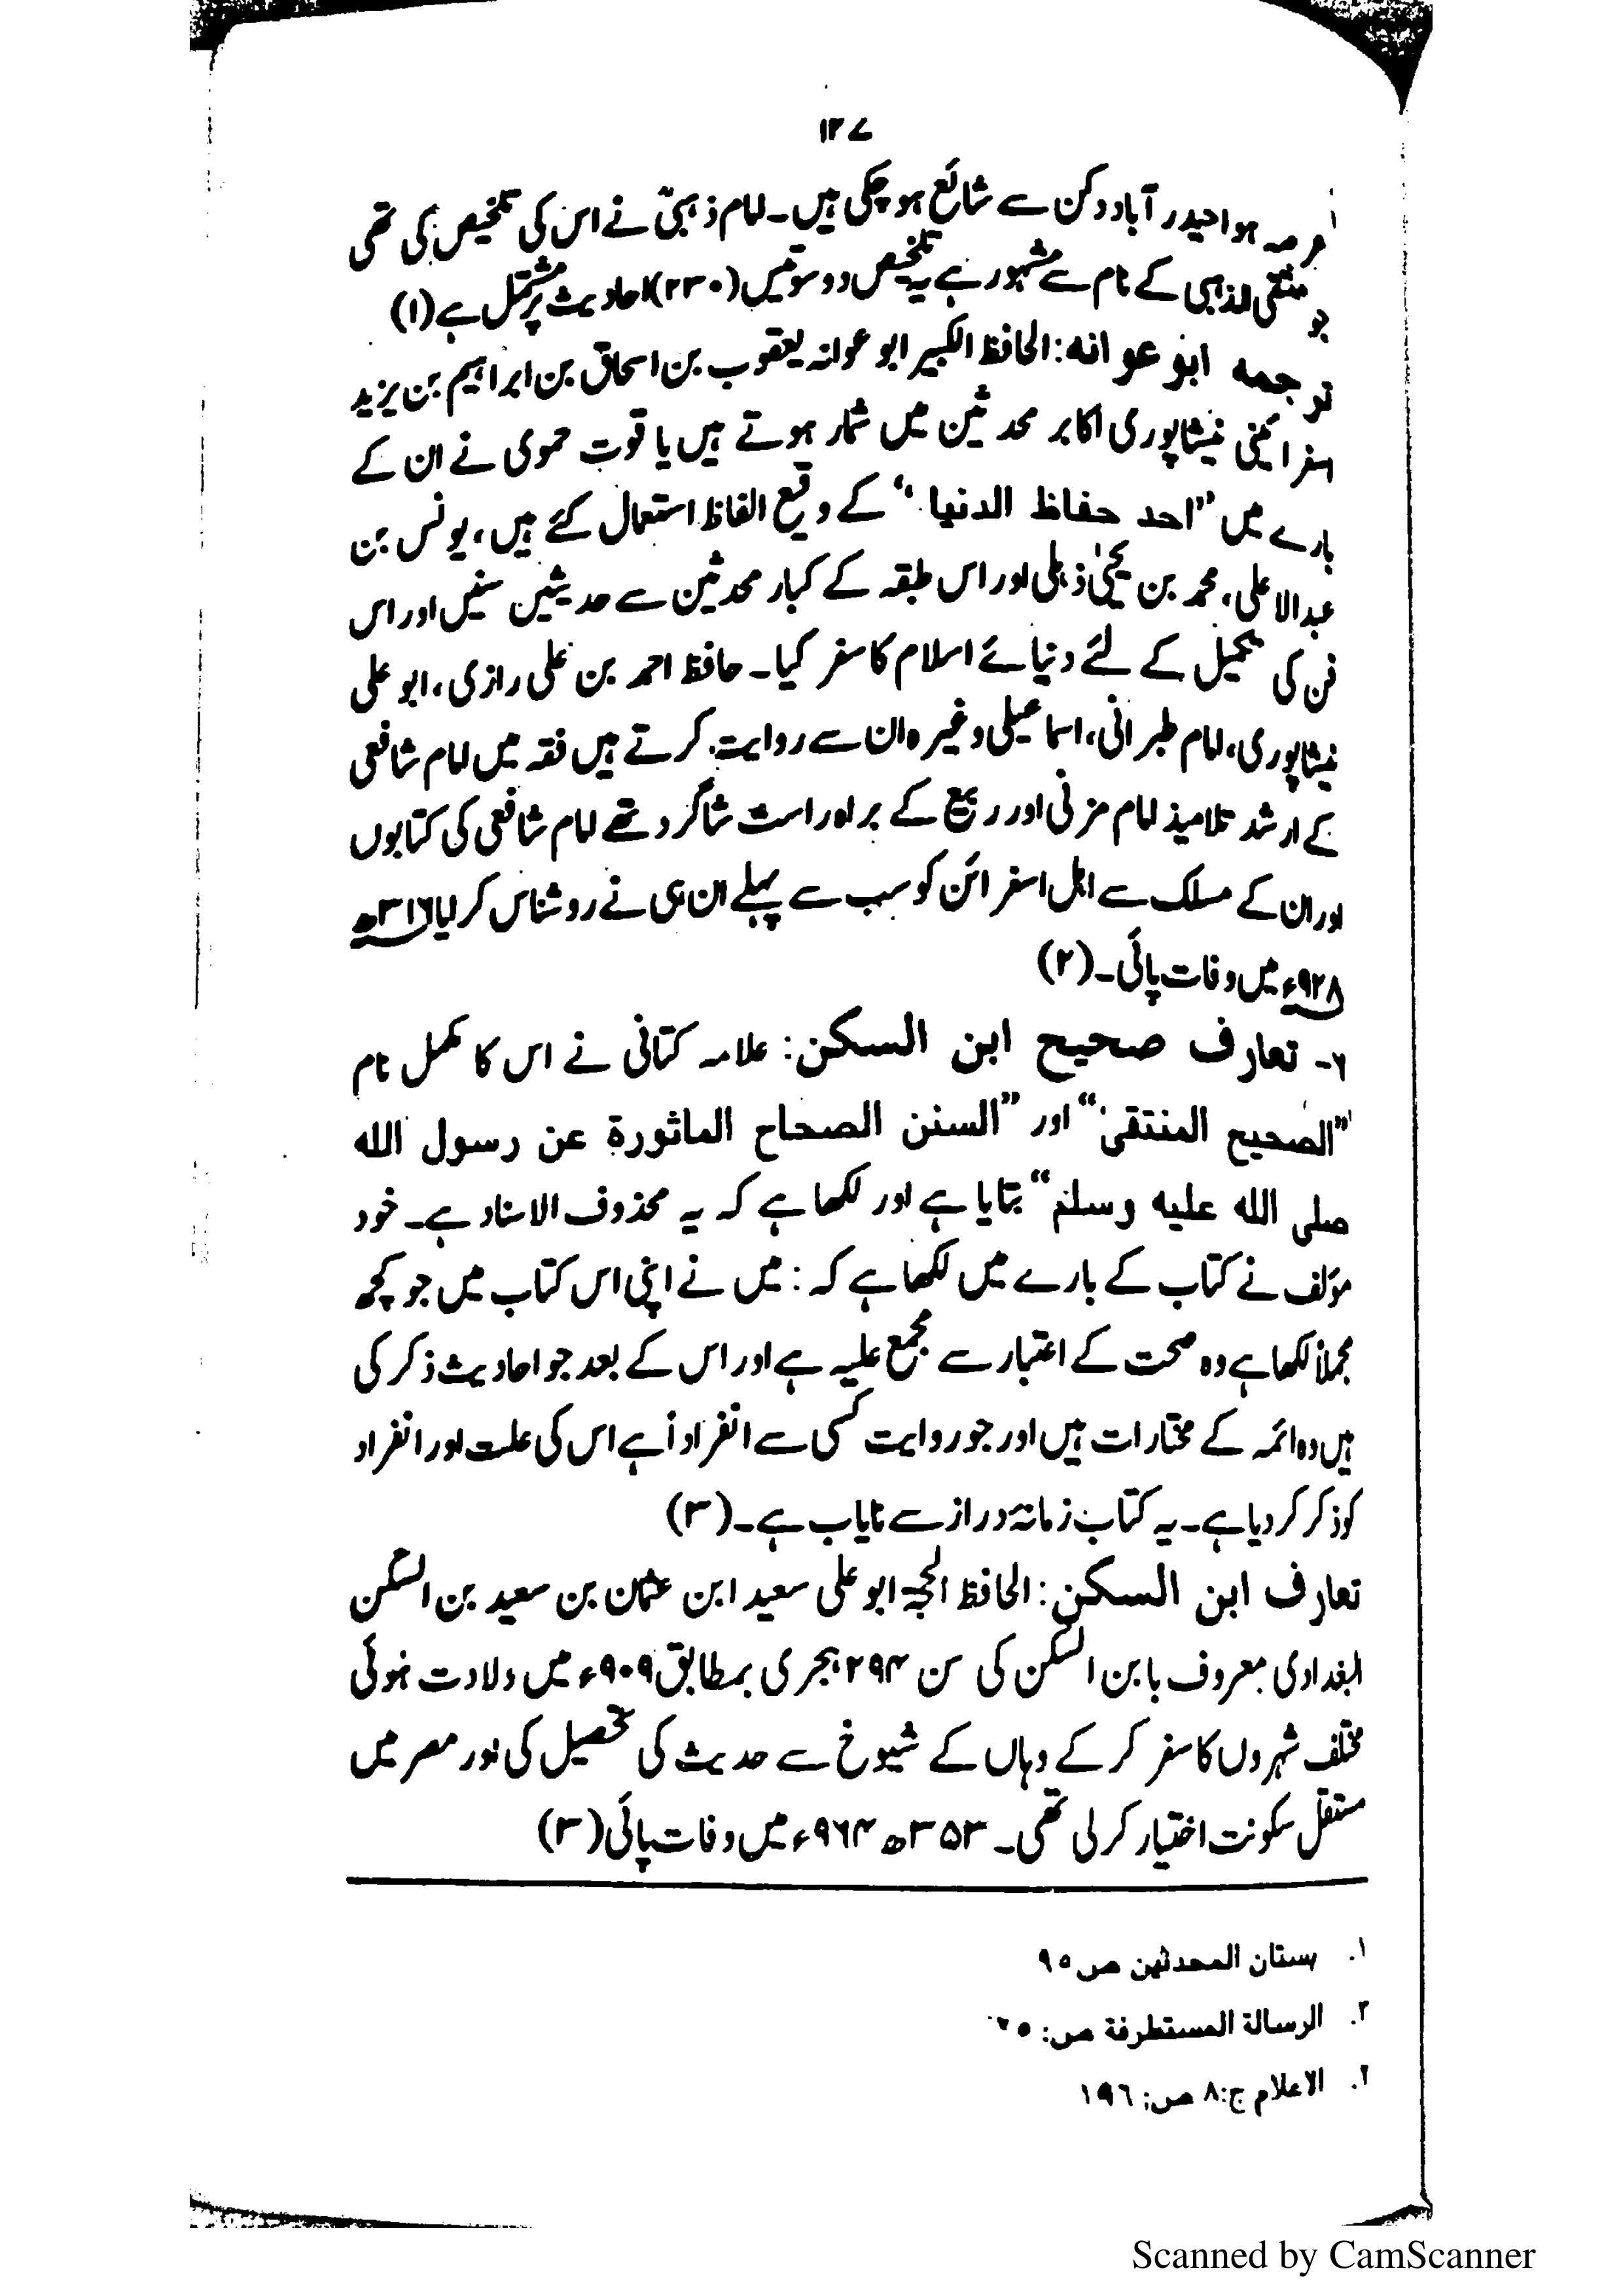 ۱۲۷
عرصہ ہوا حیدر آباد دکن سے شائع ہو چکی ہیں۔ امام ذہبیؒ نے اس کی تلخیص کی تھی
جو منتقی الذہبی کے نام سے مشہور ہے یہ تلخیص دو سو تیس (۲۳۰) احادیث پر مشتمل ہے (۱)
ترجمه ابو عوانه: الحافظ الکبیر ابو عوانہ یعقوب بن اسحاق بن ابراہیم بن یزید
اسفرائینی نیشاپوری اکابر محدثین میں شمار ہوتے ہیں یاقوت حموی نے ان کے
بارے میں ”احد حفاظ الدنیا“ کے وقیع الفاظ استعمال کئے ہیں، یونس بن
عبدالاعلی، محمد بن یحییٰ ذہلی اور اس طبقہ کے کبار محدثین سے حدیثیں سنیں اور اس
فن کی تکمیل کے لئے دنیائے اسلام کا سفر کیا۔ حافظ احمد بن علی رازی، ابو علی
نیشاپوری، امام طبرانی، اسماعیلی وغیرہ ان سے روایت کرتے ہیں فقہ میں امام شافعی
کے ارشد تلامیذ امام مزنی اور ربیع کے براہ راست شاگرد تھے امام شافعی کی کتابوں
اور ان کے مسلک سے اہل اسفرائن کو سب سے پہلے ان ہی نے روشناس کرایا ۳۱۶ھ
۹۲۸ء میں وفات پائی۔ (۲)
۶- تعارف صحیح ابن السکن: علامہ کتانی نے اس کا مکمل نام
”الصحیح المنتقیٰ“ اور ”السنن الصحاح الماثورة عن رسول الله
صلی الله علیه وسلم“ بتایا ہے اور لکھا ہے کہ یہ محذوف الاسناد ہے۔ خود
مؤلف نے کتاب کے بارے میں لکھا ہے کہ: میں نے اپنی اس کتاب میں جو کچھ
مجملاً لکھا ہے وہ صحت کے اعتبار سے مجمع علیہ ہے اور اس کے بعد جو احادیث ذکر کی
ہیں وہ ائمہ کے مختارات ہیں اور جو روایت کسی سے انفراداً ہے اس کی علت اور انفراد
کو ذکر کر دیا ہے۔ یہ کتاب زمانۂ دراز سے نایاب ہے۔ (۳)
تعارف ابن السکن: الحافظ الحجۃ ابو علی سعید ابن عثمان بن سعید بن السکن
البغدادی معروف بابن السکن کی سن ۲۹۴ ہجری بمطابق ۹۰۹ء میں ولادت ہوئی
مختلف شہروں کا سفر کر کے وہاں کے شیوخ سے حدیث کی تحصیل کی اور مصر میں
مستقل سکونت اختیار کر لی تھی۔ ۳۵۳ھ ۹۶۴ء میں وفات پائی (۳)
۱. بستان المحدثین ص ۹۵
۲. الرسالة المستطرفة ص: ۲۵
۲. الاعلام ج:۸ ص: ۱۹۶
Scanned by CamScanner